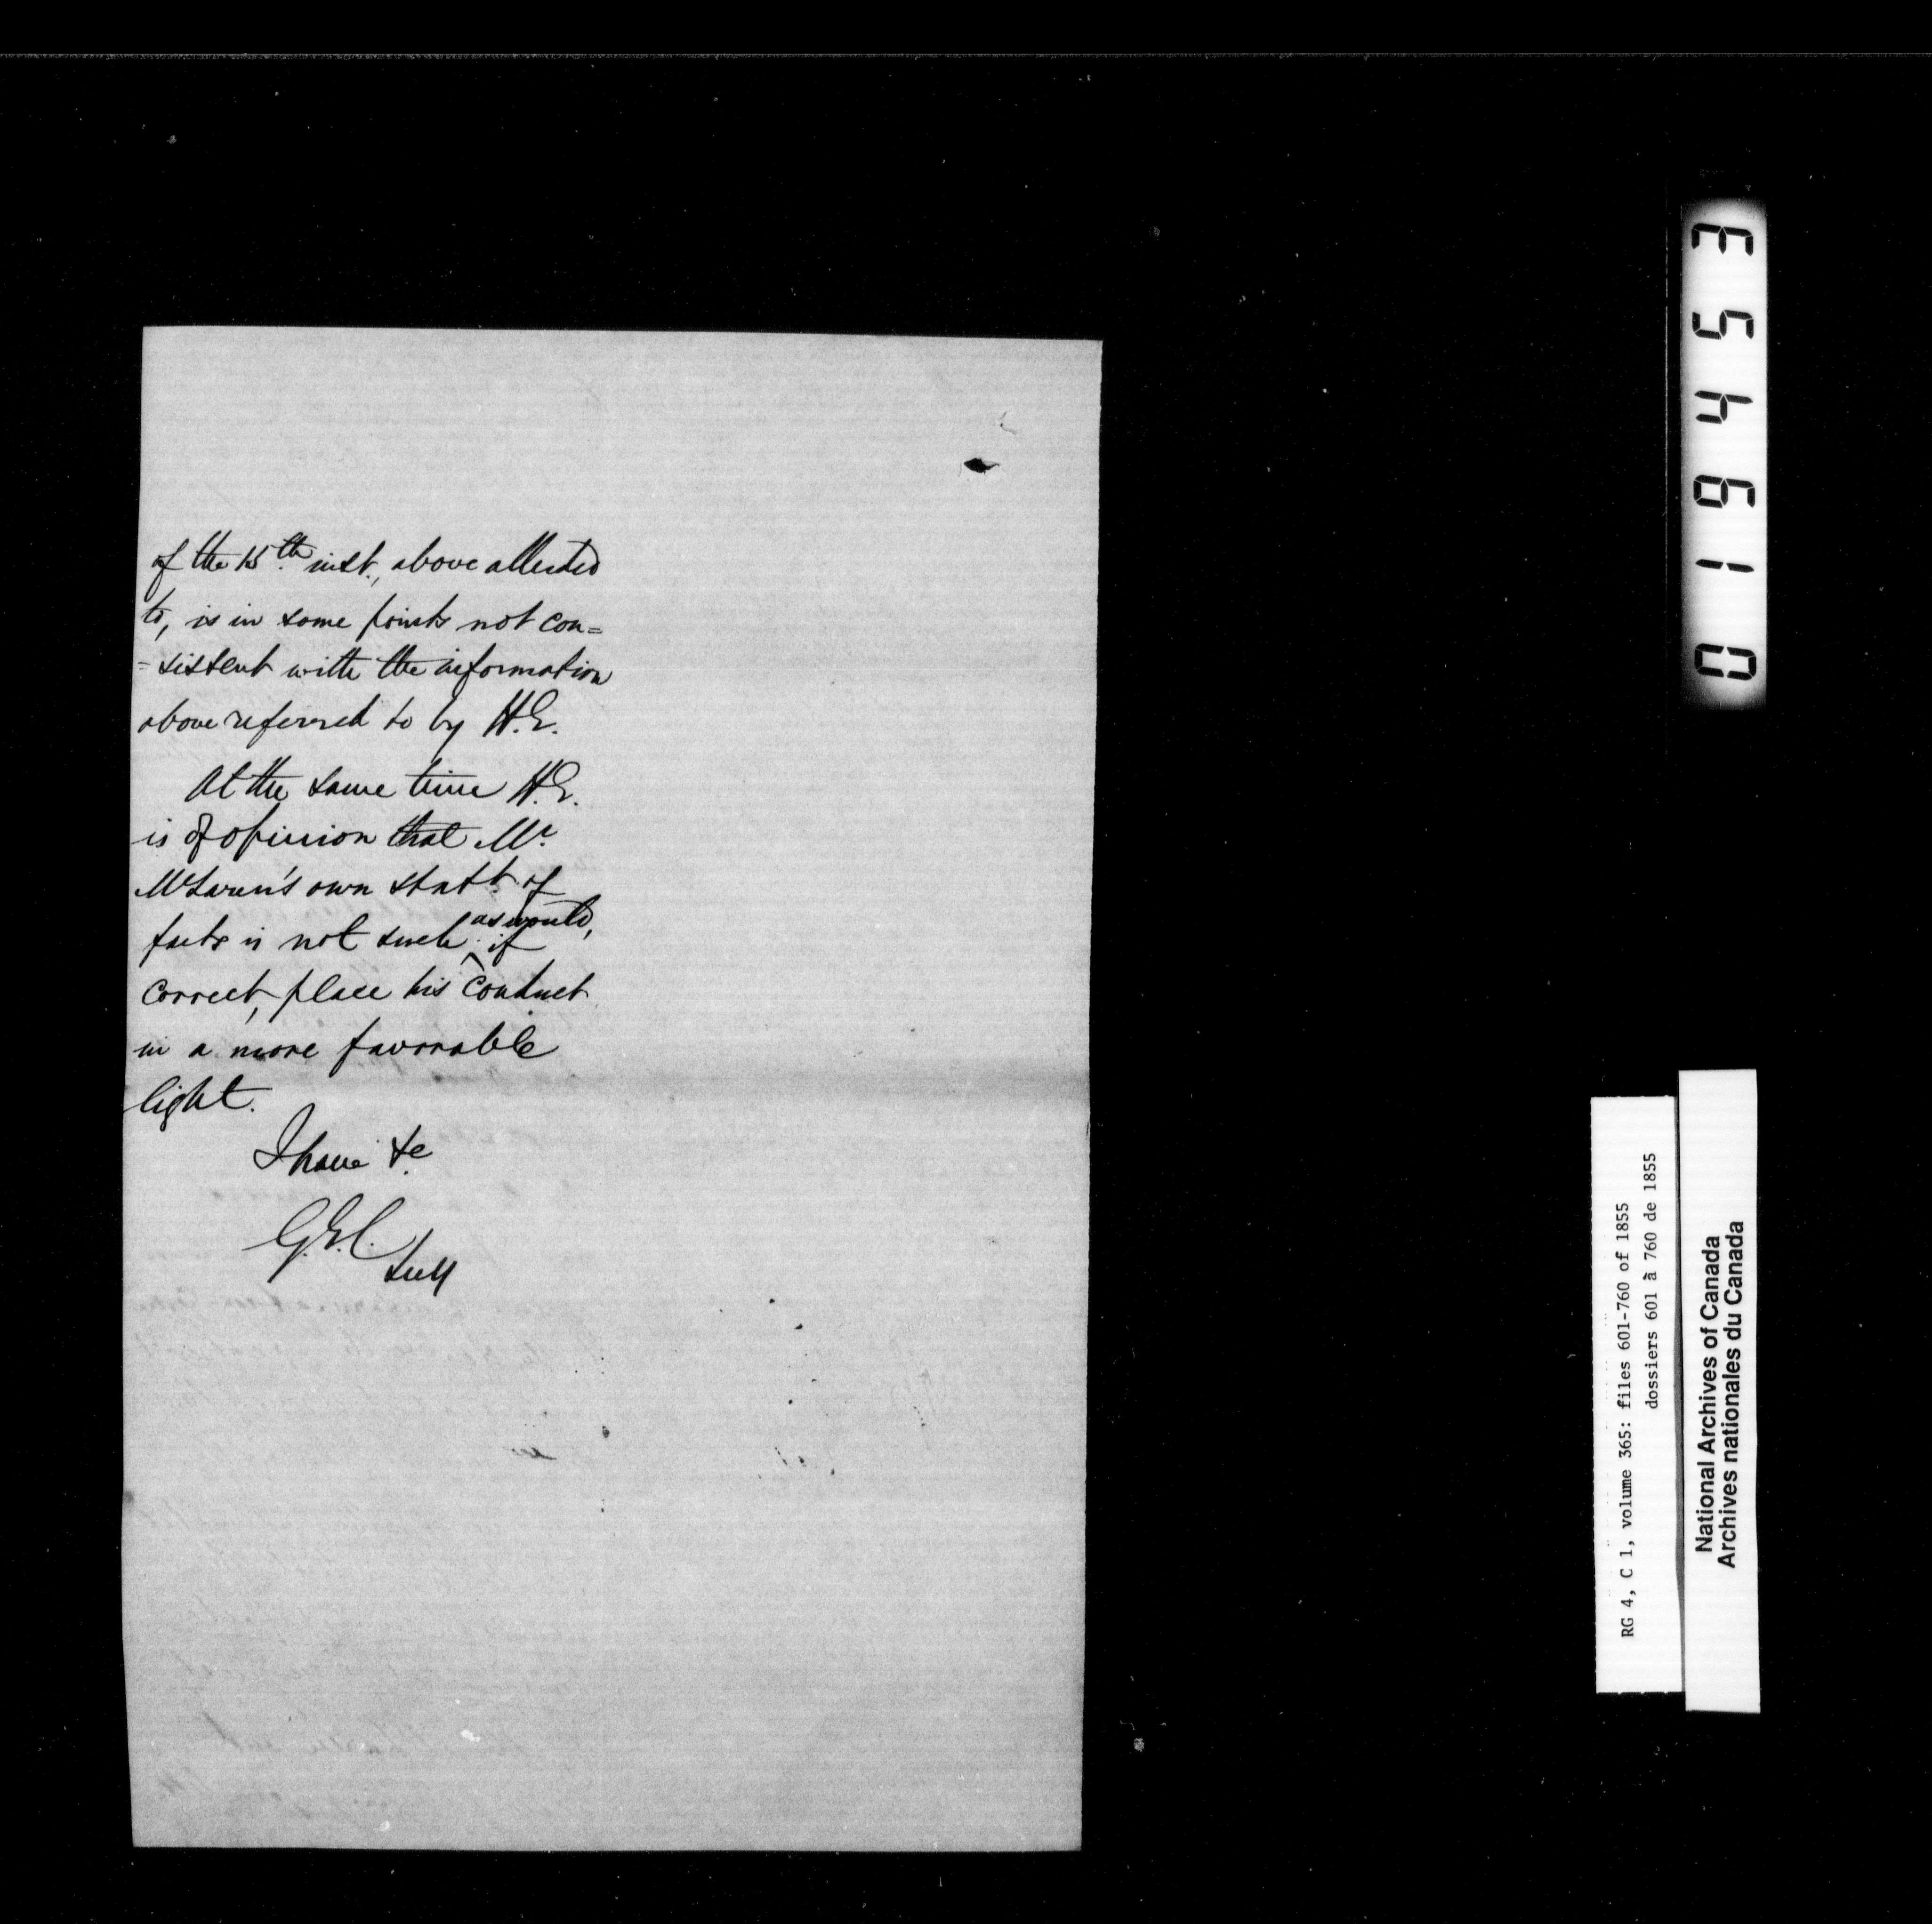 of the 15th inst., above alluded
to, is in some points not con=
=sistent with the information
above referred to by H.E.
At the same time H.E.
is of opinion that Mr.
McLaren's own statt. of
facts is not such as would, if
correct, place his conduct
in a more favorable
light.
I have &c.
G.E.C.
Secy
019453
RG 4, C 1, volume 365: files 601-760 of 1855
dossiers 601 à 760 de 1855
National Archives of Canada
Archives nationales du Canada